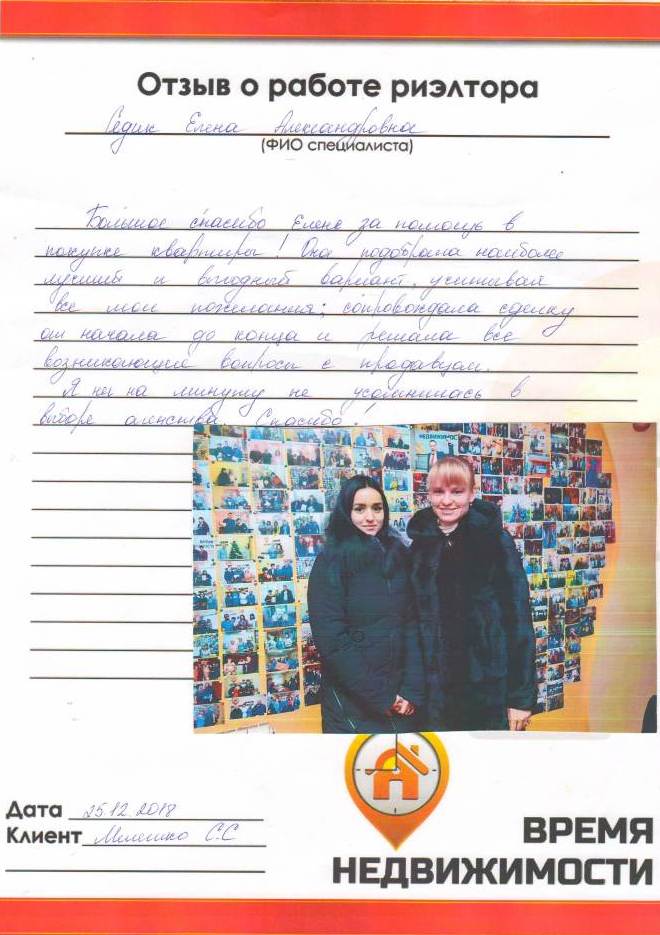 Отзыв о работе риэлтора
Седик Елена Александровна
(ФИО специалиста)
Большое спасибо Елене за помощь в
покупке квартиры! Она подобрала наиболее
лучший и выгодный вариант, учитывая
все мои пожелания; сопровождала сделку
от начала до конца и решала все
возникающие вопросы с продавцом.
Я ни на минуту не усомнилась в
выборе агенства. Спасибо!
НЕДВИЖИМОС
Дата 25.12.2018
Клиент С.С
ВРЕМЯ
НЕДВИЖИМОСТИ